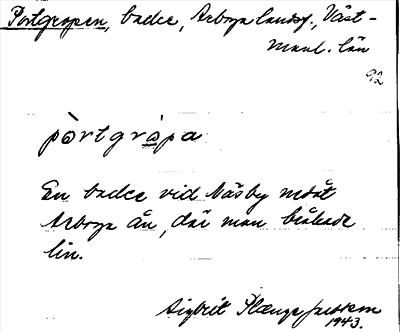 Portgropen, backe, Arboga landsf., Väst-
manl. län
92
pòrtgròpa
En backe vid Näsby mot
Arboga ån, där man bråkade
lin.
Sigbrit Plænge Jacobson
1943.